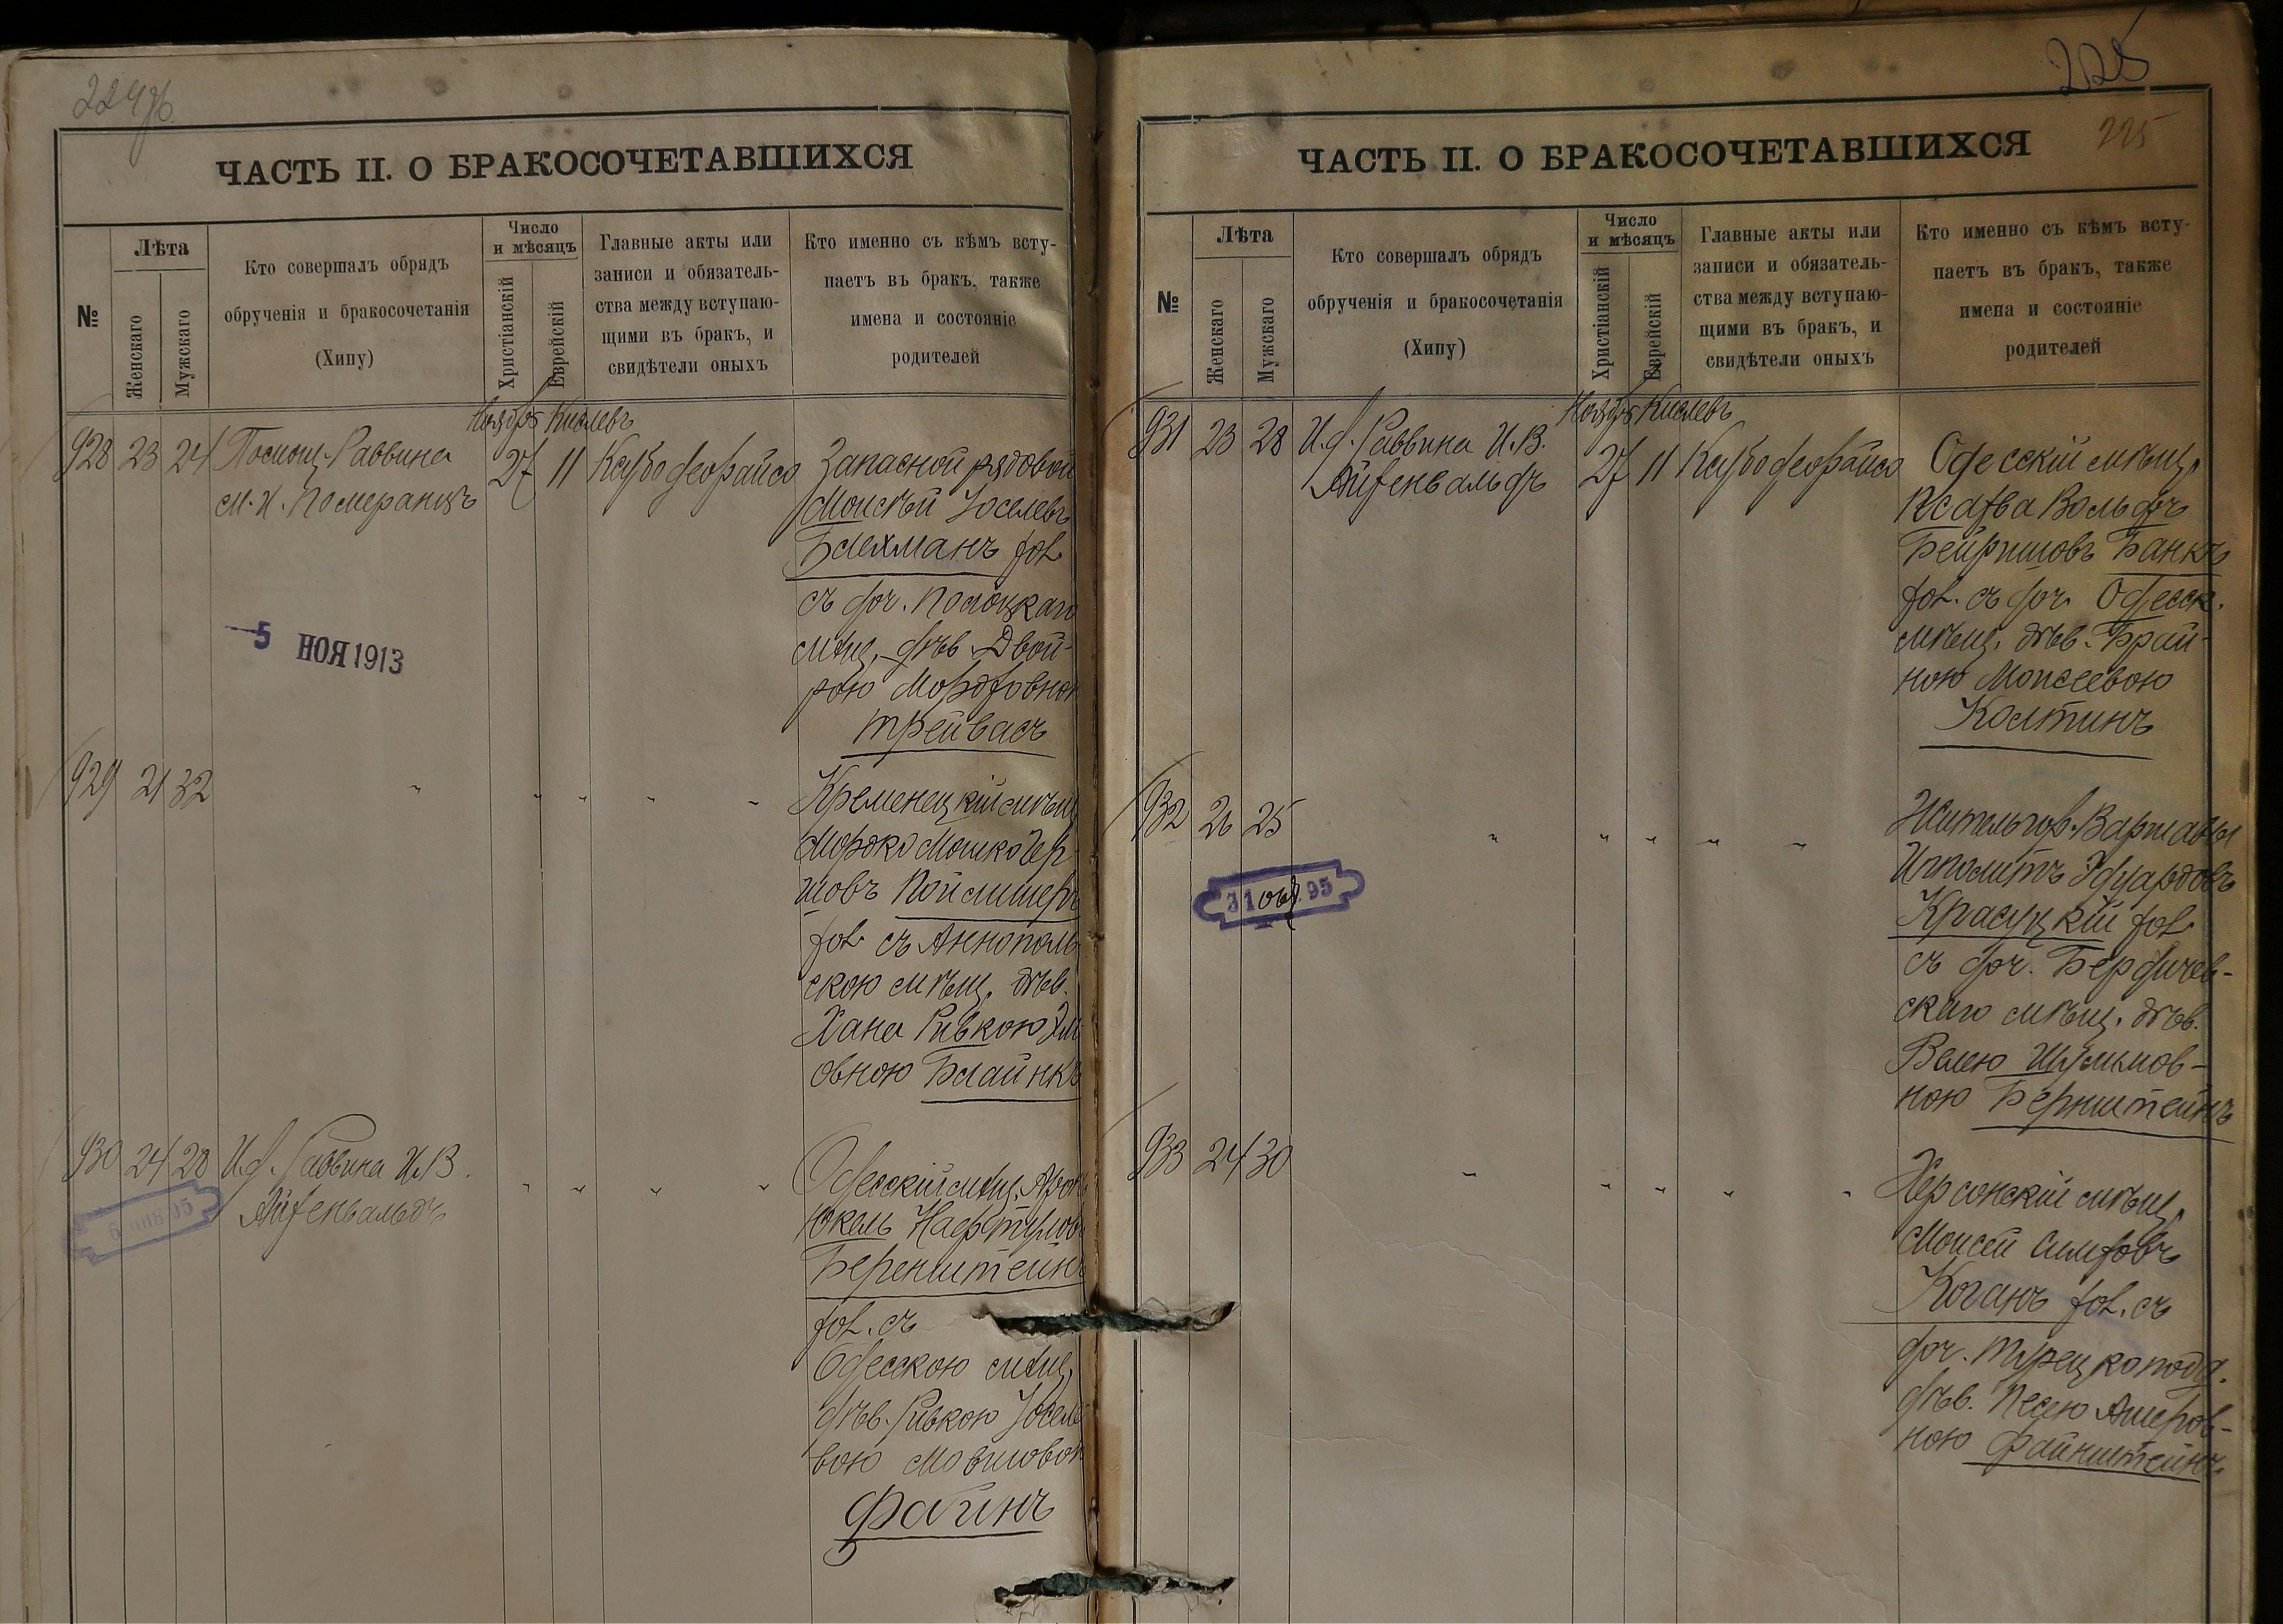 224об.
ЧАСТЬ II. О БРАКОСОЧЕТАВШИХСЯ
№
Лѣта
Женскаго
Мужскаго
Кто совершалъ обрядъ
обрученія и бракосочетанія
(Хипу)
Число
и мѣсяцъ
Христіанскій
Еврейскій
Главные акты или
записи и обязатель-
ства между вступаю-
щими въ бракъ, и
свидѣтели оныхъ
Кто именно съ кѣмъ всту-
паетъ въ бракъ, также
имена и состояніе
родителей
Ноября Кислевъ
928 23 24 Помощ. Раввина 27 11
М. И. Померанцъ
Запасной рядовой
Моисей Іоселевъ
Блехманъ хол.
съ доч. Полоцкаго
мѣщ. дѣв. Двой-
рою Мордковной
Трейвасъ
5 НОЯ 1913
929 21 32 " " " " "
Кременецкій мѣщ.
Мордко Мошко Гер
шовъ Пойлишеръ
хол. съ Аннополь
скою мѣщ. дѣв.
Хана Ривкою
овною Блайнкъ
930 24 28 И. д. Раввина И. В.
Айзенвальдъ " " " "
Одесскій мѣщ. Аронъ
Юкель Нафтулов
Беренштейнъ
хол. съ
Одесскою мѣщ.
дѣв. Ривкою Іоселе
вою Мовшовой
Файнъ
225
225
ЧАСТЬ II. О БРАКОСОЧЕТАВШИХСЯ
№
Лѣта
Женскаго
Мужскаго
Кто совершалъ обрядъ
обрученія и бракосочетанія
(Хипу)
Число
и мѣсяцъ
Христіанскій
Еврейскій
Главные акты или
записи и обязатель-
ства между вступаю-
щими въ бракъ, и
свидѣтели оныхъ
Кто именно съ кѣмъ всту-
паетъ въ бракъ, также
имена и состояніе
родителей
Ноября Кислевъ
931 23 28 И. д. Раввина И. В. 27 11
Айзенвальдъ
Одесскій мѣщ.
Вольфъ
Бейришовъ Банкъ
хол. съ доч. Одесск.
мѣщ. дѣв. Брай-
ною Моисеевою
Колтинъ
932 26 25 " " " " "
Житель гор. Варшавы
Ипполитъ Эдуардовъ
Красуцкій хол.
съ доч. Бердичев-
скаго мѣщ. дѣв.
Велею Шулимов-
ною Бернштейнъ
31 95
933 24 30 " " " " "
Херсонскій мѣщ.
Моисей Симховъ
Коганъ хол. съ
доч. Турецкоподд.
дѣв. Песею Ашеров-
ною Файнштейнъ